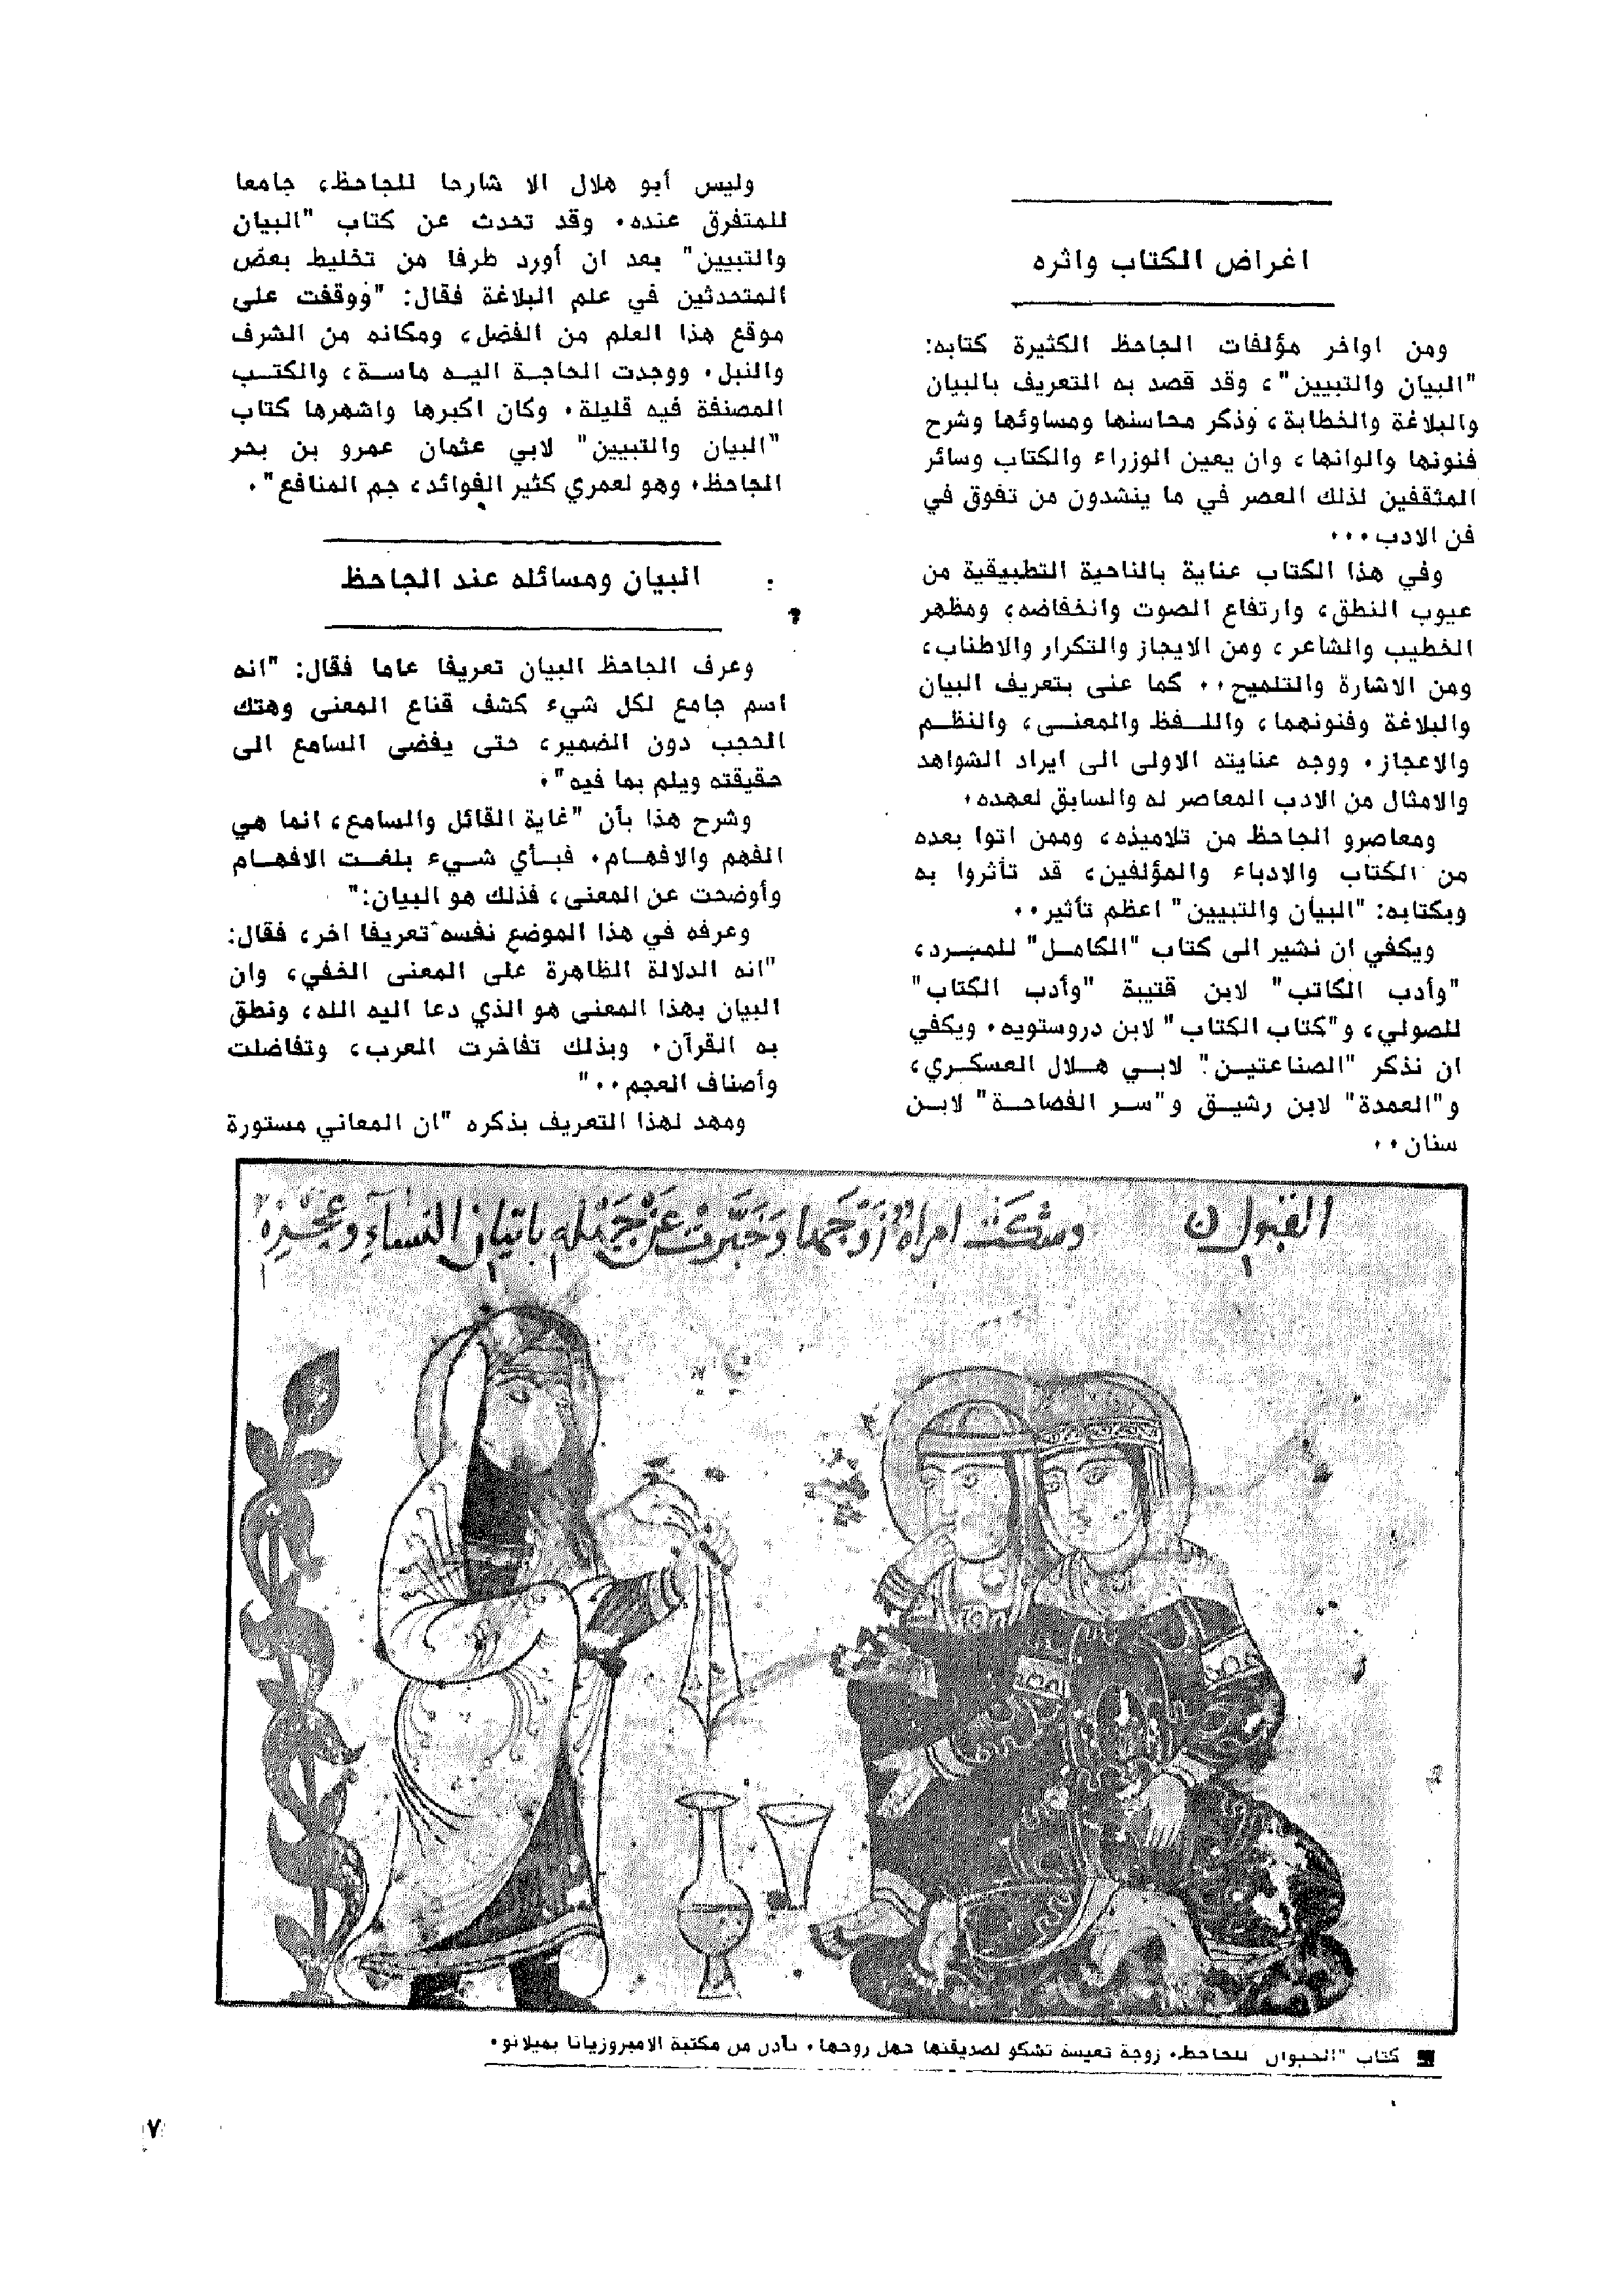 اغراض الكتاب واثره
ومن اواخر مؤلفات الجاحظ الكثيرة كتابه:
"البيان والتبيين"، وقد قصد به التعريف بالبيان
والبلاغة والخطابة، وذكر محاسنها ومساوئها وشرح
فنونها والوانها، وان يعين الوزراء والكتاب وسائر
المثقفين لذلك العصر في ما ينشدون من تفوق في
فن الادب...
وفي هذا الكتاب عناية بالناحية التطبيقية من
عيوب النطق، وارتفاع الصوت وانخفاضه، ومظهر
الخطيب والشاعر، ومن الايجاز والتكرار والاطناب،
ومن الاشارة والتلميح.. كما عنى بتعريف البيان
والبلاغة وفنونهما، واللـفظ والمعنـى، والنظـم
والاعجاز. ووجه عنايته الاولى الى ايراد الشواهد
والامثال من الادب المعاصر له والسابق لعهده.
ومعاصرو الجاحظ من تلاميذه، وممن اتوا بعده
من الكتاب والادباء والمؤلفين، قد تأثروا به
وبكتابه: "البيان والتبيين" اعظم تأثير..
ويكفي ان نشير الى كتاب "الكامـل" للمبـرد،
"وأدب الكاتب" لابن قتيبة "وأدب الكتاب"
للصولي، و"كتاب الكتاب" لابن دروستويه. ويكفي
ان نذكر "الصناعتيـن" لابـي هـلال العسكـري،
و"العمدة" لابن رشيـق و"سـر الفصاحـة" لابـن
سنان..
وليس أبو هلال الا شارحا للجاحظ، جامعا
للمتفرق عنده. وقد تحدث عن كتاب "البيان
والتبيين" بعد ان أورد طرفا من تخليط بعض
المتحدثين في علم البلاغة فقال: "فوقفت على
موقع هذا العلم من الفضل، ومكانه من الشرف
والنبل. ووجدت الحاجـة اليـه ماسـة، والكتـب
المصنفة فيه قليلة. وكان اكبرها واشهرها كتاب
"البيان والتبيين" لابي عثمان عمرو بن بحر
الجاحظ. وهو لعمري كثير الفوائد، جم المنافع".
البيان ومسائله عند الجاحظ
وعرف الجاحظ البيان تعريفا عاما فقال: "انه
اسم جامع لكل شيء كشف قناع المعنى وهتك
الحجب دون الضمير، حتى يفضى السامع الى
حقيقته ويلم بما فيه".
وشرح هذا بأن "غاية القائل والسامع، انما هي
الفهم والافهـام. فبـأي شـيء بلغـت الافهـام
وأوضحت عن المعنى، فذلك هو البيان:"
وعرفه في هذا الموضع نفسه تعريفا اخر، فقال:
"انه الدلالة الظاهرة على المعنى الخفي، وان
البيان بهذا المعنى هو الذي دعا اليه الله، ونطق
به القرآن. وبذلك تفاخرت العرب، وتفاضلت
وأصناف العجم.."
ومهد لهذا التعريف بذكره "ان المعاني مستورة
القبول ن وشكت امراة زوجها وخبرت عن جهله باتيان النساء وعجزه
كتاب "الحيوان للجاحظ. زوجة تعيسة تشكو لصديقتها جهل زوجها. بأذن من مكتبة الامبروزيانا بميلانو.
٧